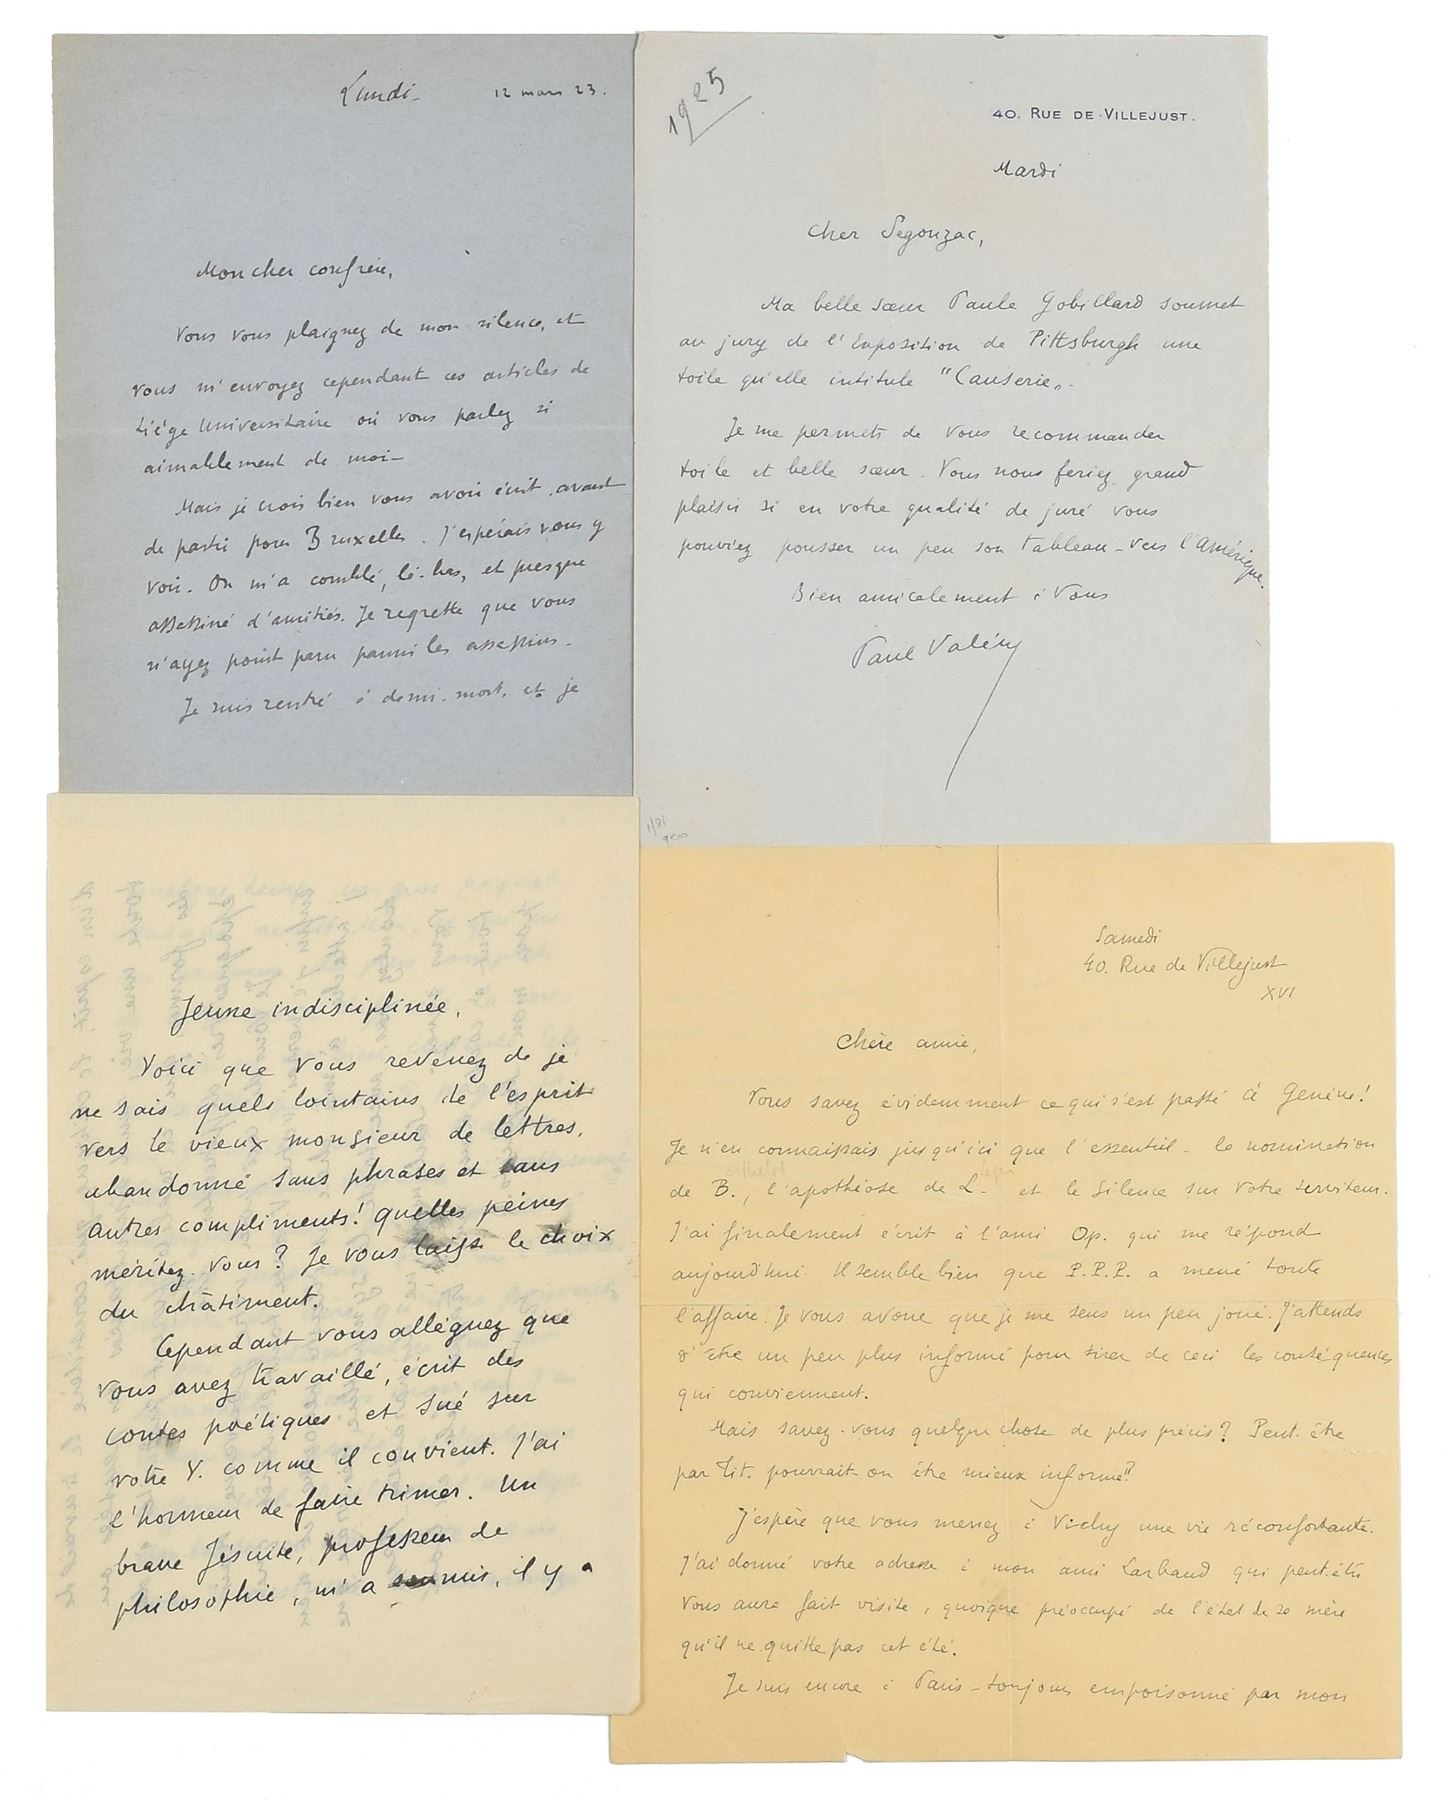 Lundi- 12 mars 23.
Mon cher confrère,
Vous vous plaignez de mon silence, et
vous m'envoyez cependant ces articles de
Liége Universitaire où vous parlez si
aimablement de moi-
Mais je crois bien vous avoir écrit, avant
de partir pour Bruxelles. J'espérais vous y
voir. On m'a comblé, là-bas, et presque
assassiné d'amitiés. Je regrette que vous
n'ayez point paru parmi les assassins.
Je suis rentré à demi-mort, et je
1925
40. RUE DE VILLEJUST.
Mardi
Cher Segonzac,
Ma belle sœur Paule Gobillard soumet
au jury de l'Exposition de Pittsburgh une
toile qu'elle intitule "Causerie".
Je me permets de vous recommander
toile et belle sœur. Vous nous feriez grand
plaisir si en votre qualité de juré vous
pouviez pousser un peu son tableau - vers l'Amérique.
Bien amicalement à vous
Paul Valéry
1/81
Jeune indisciplinée,
Voici que vous revenez de je
ne sais quels lointains de l'esprit
vers le vieux monsieur de lettres,
abandonné sans phrases et sans
autres compliments! quelles peines
méritez-vous? Je vous laisse le choix
du châtiment.
Cependant vous alléguez que
vous avez travaillé, écrit des
contes poétiques et sué sur
votre V. comme il convient. J'ai
l'honneur de faire trimer. Un
brave Jésuite, professeur de
philosophie, m'a soumis, il y a
Samedi
40. Rue de Villejust
XVI
Chère amie,
Vous savez évidemment ce qui s'est passé à Genève!
Je n'en connaissais jusqu'ici que l'essentiel - la nomination
de B., l'apothéose de L. - et le silence sur votre serviteur.
J'ai finalement écrit à l'ami Op. qui me répond
aujourd'hui. Il semble bien que P.P.P. a mené toute
l'affaire. Je vous avoue que je me sens un peu joué. J'attends
d'être un peu plus informé pour tirer de ceci les conséquences
qui conviennent.
Mais savez-vous quelque chose de plus précis? Peut-être
par Tit. pourrait-on être mieux informé?
J'espère que vous menez à Vichy une vie réconfortante.
J'ai donné votre adresse à mon ami Larbaud qui peut-être
vous aura fait visite, quoique préoccupé de l'état de sa mère
qu'il ne quitte pas cet été.
Je suis encore à Paris - toujours empoisonné par mon